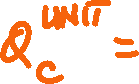 Q_C^{UNIT} =